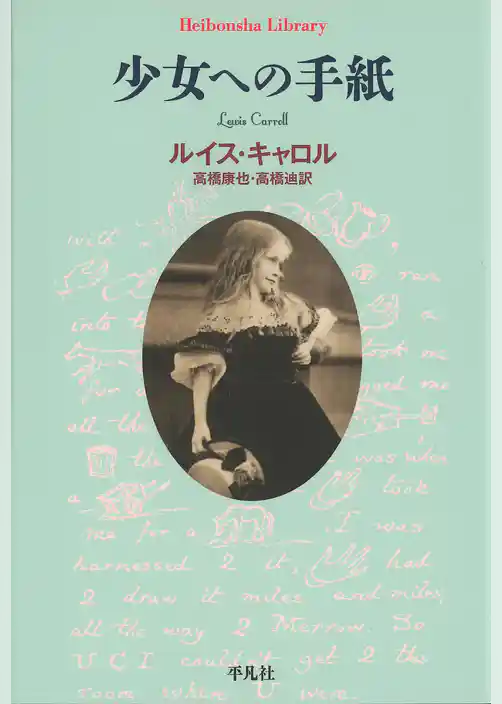 Heibonsha Library
少女への手紙
Lewis Carroll
ルイス・キャロル
高橋康也・高橋迪訳
with
ran
into a
took me
for a ged me
all the
the was when
a took
me for a . I was
harnessed 2 it, had
2 draw it miles and miles,
all the way 2 Merrow. So
U C I couldn't get 2 the
room where U were.
平凡社